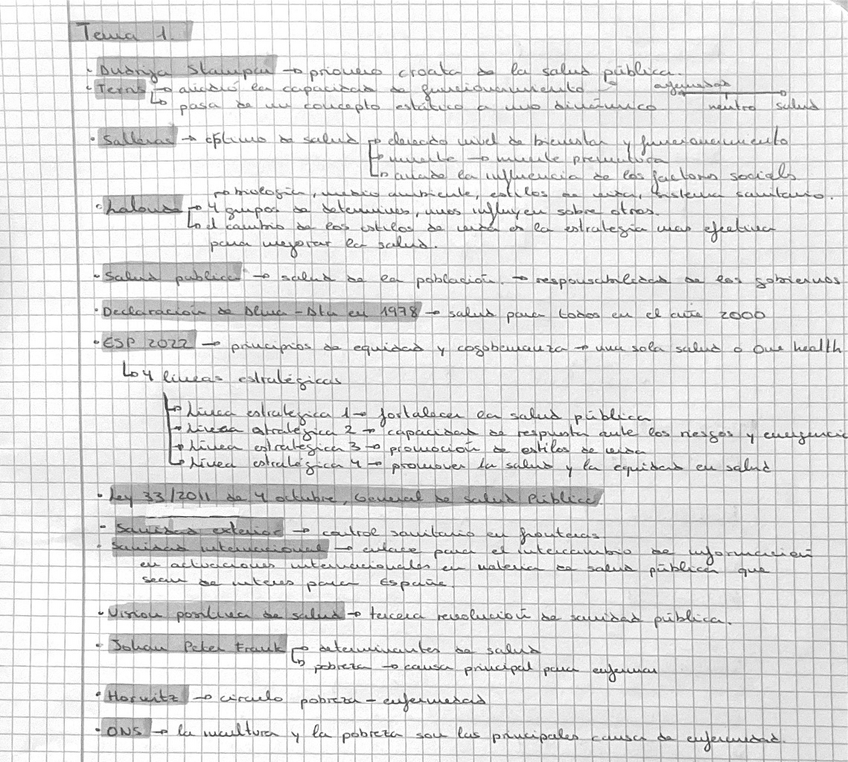 Tema 1.
· Dubrija Stampar → pionero croata de la salud pública.
· Terris → añadió la capacidad de funcionamiento → enfermedad
↳ pasa de un concepto estático a uno dinámico neutro salud
· Salleras → óptimo de salud → elevado nivel de bienestar y funcionamiento
↳ muerte → muerte prematura
↳ añade la influencia de los factores sociales
→ biología, medio ambiente, estilos de vida, sistema sanitario.
· Lalonde → 4 grupos de determines, unos influyen sobre otros.
↳ el cambio de los estilos de vida es la estrategia más efectiva
para mejorar la salud.
· Salud pública → salud de la población. → responsabilidad de los gobiernos
· Declaración de Alma-Ata en 1978 → salud para todos en el año 2000
· ESP 2022 → principios de equidad y cogobernanza → una sola salud o One health
↳ 4 líneas estratégicas
↳ Línea estratégica 1 → fortalecer la salud pública
↳ Línea estratégica 2 → capacidad de respuesta ante los riesgos y emergencia
↳ Línea estratégica 3 → promoción de estilos de vida
↳ Línea estratégica 4 → promover la salud y la equidad en salud
· Ley 33/2011 de 4 octubre, General de Salud Pública
· Sanidad exterior → control sanitario en fronteras
· Sanidad internacional → enlace para el intercambio de información
en actuaciones internacionales en materia de salud pública que
sean de interés para España.
· Visión positiva de salud → tercera revolución de sanidad pública.
· Johan Peter Frank → determinantes de salud
↳ pobreza → causa principal para enfermar
· Horwitz → círculo pobreza - enfermedad
· OMS → la incultura y la pobreza son las principales causa de enfermedad.